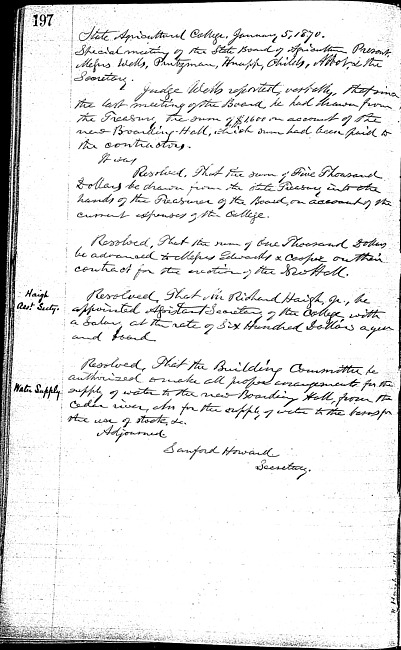 197
State Agricultural College, January 5, 1870.
Special meeting of the State Board of Agriculture. Present,
Messrs Wells, Prutzman, Knapp, Childs, Abbot & the
Secretary.
Judge Wells reported, verbally, that since
the last meeting of the Board, he had drawn from
the Treasury, the sum of $1600 on account of the
new Boarding-Hall, which sum had been paid to
the contractors.
It was
Resolved, That the sum of Five Thousand
Dollars be drawn from the State Treasury into the
hands of the Treasurer of the Board, on account of the
current expenses of the College.
Resolved, That the sum of One Thousand Dollars
be advanced to Messrs Edwards & Cooper on their
contract for the erection of the New Hall.
Haigh
Asst. Secty.
Resolved, That Mr Richard Haigh, Jr., be
appointed Assistant Secretary of the College, with
a Salary at the rate of Six Hundred Dollars a year
and board.
Water Supply
Resolved, That the Building Committee be
authorized to make all proper arrangements for the
supply of water to the new Boarding Hall, from the
Cedar river, also for the supply of water to the barns for
the use of stock, &c.
Adjourned
Sanford Howard
Secretary.